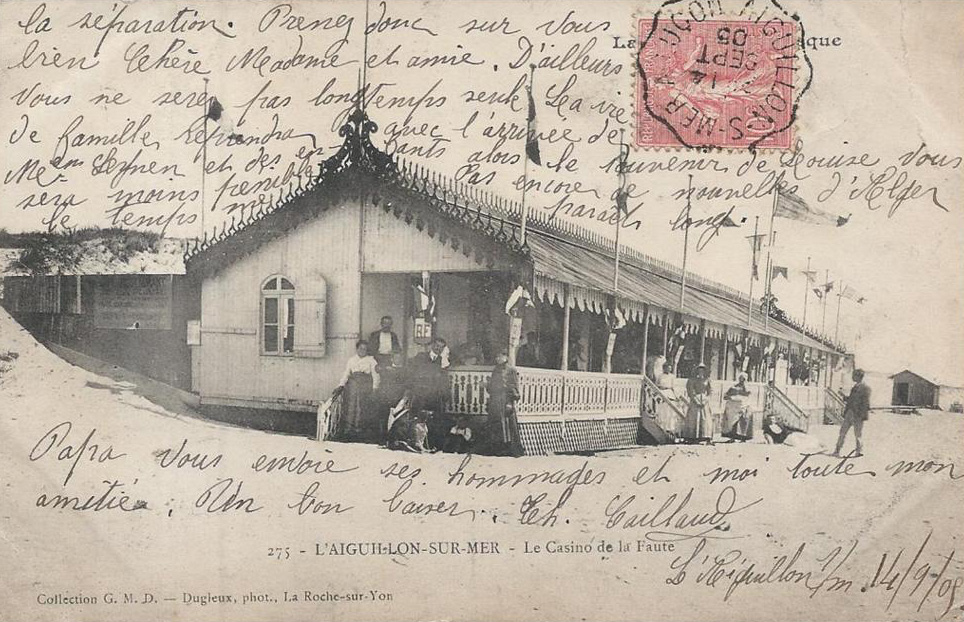 la séparation. Prenez donc sur vous
bien Chère Madame et amie. D'ailleurs
Vous ne serez pas longtemps seule La vie
de famille reprendra avec l'arrivée de
Me et des enfants alors le souvenir de Louise Vous
sera moins pénible Pas encore de nouvelles d'
le temps me paraît long.
La que
AIGUILLON-S-MER A
14
SEPT
05
10
RF
Papa Vous envoie ses hommages et moi toute mon
amitié. Un bon baiser. Ch. Caillaud
275 - L'AIGUILLON-SUR-MER - Le Casino de la Faute
L'Aiguillon s/m 14/9/05
Collection G. M. D. — Dugleux, phot., La Roche-sur-Yon